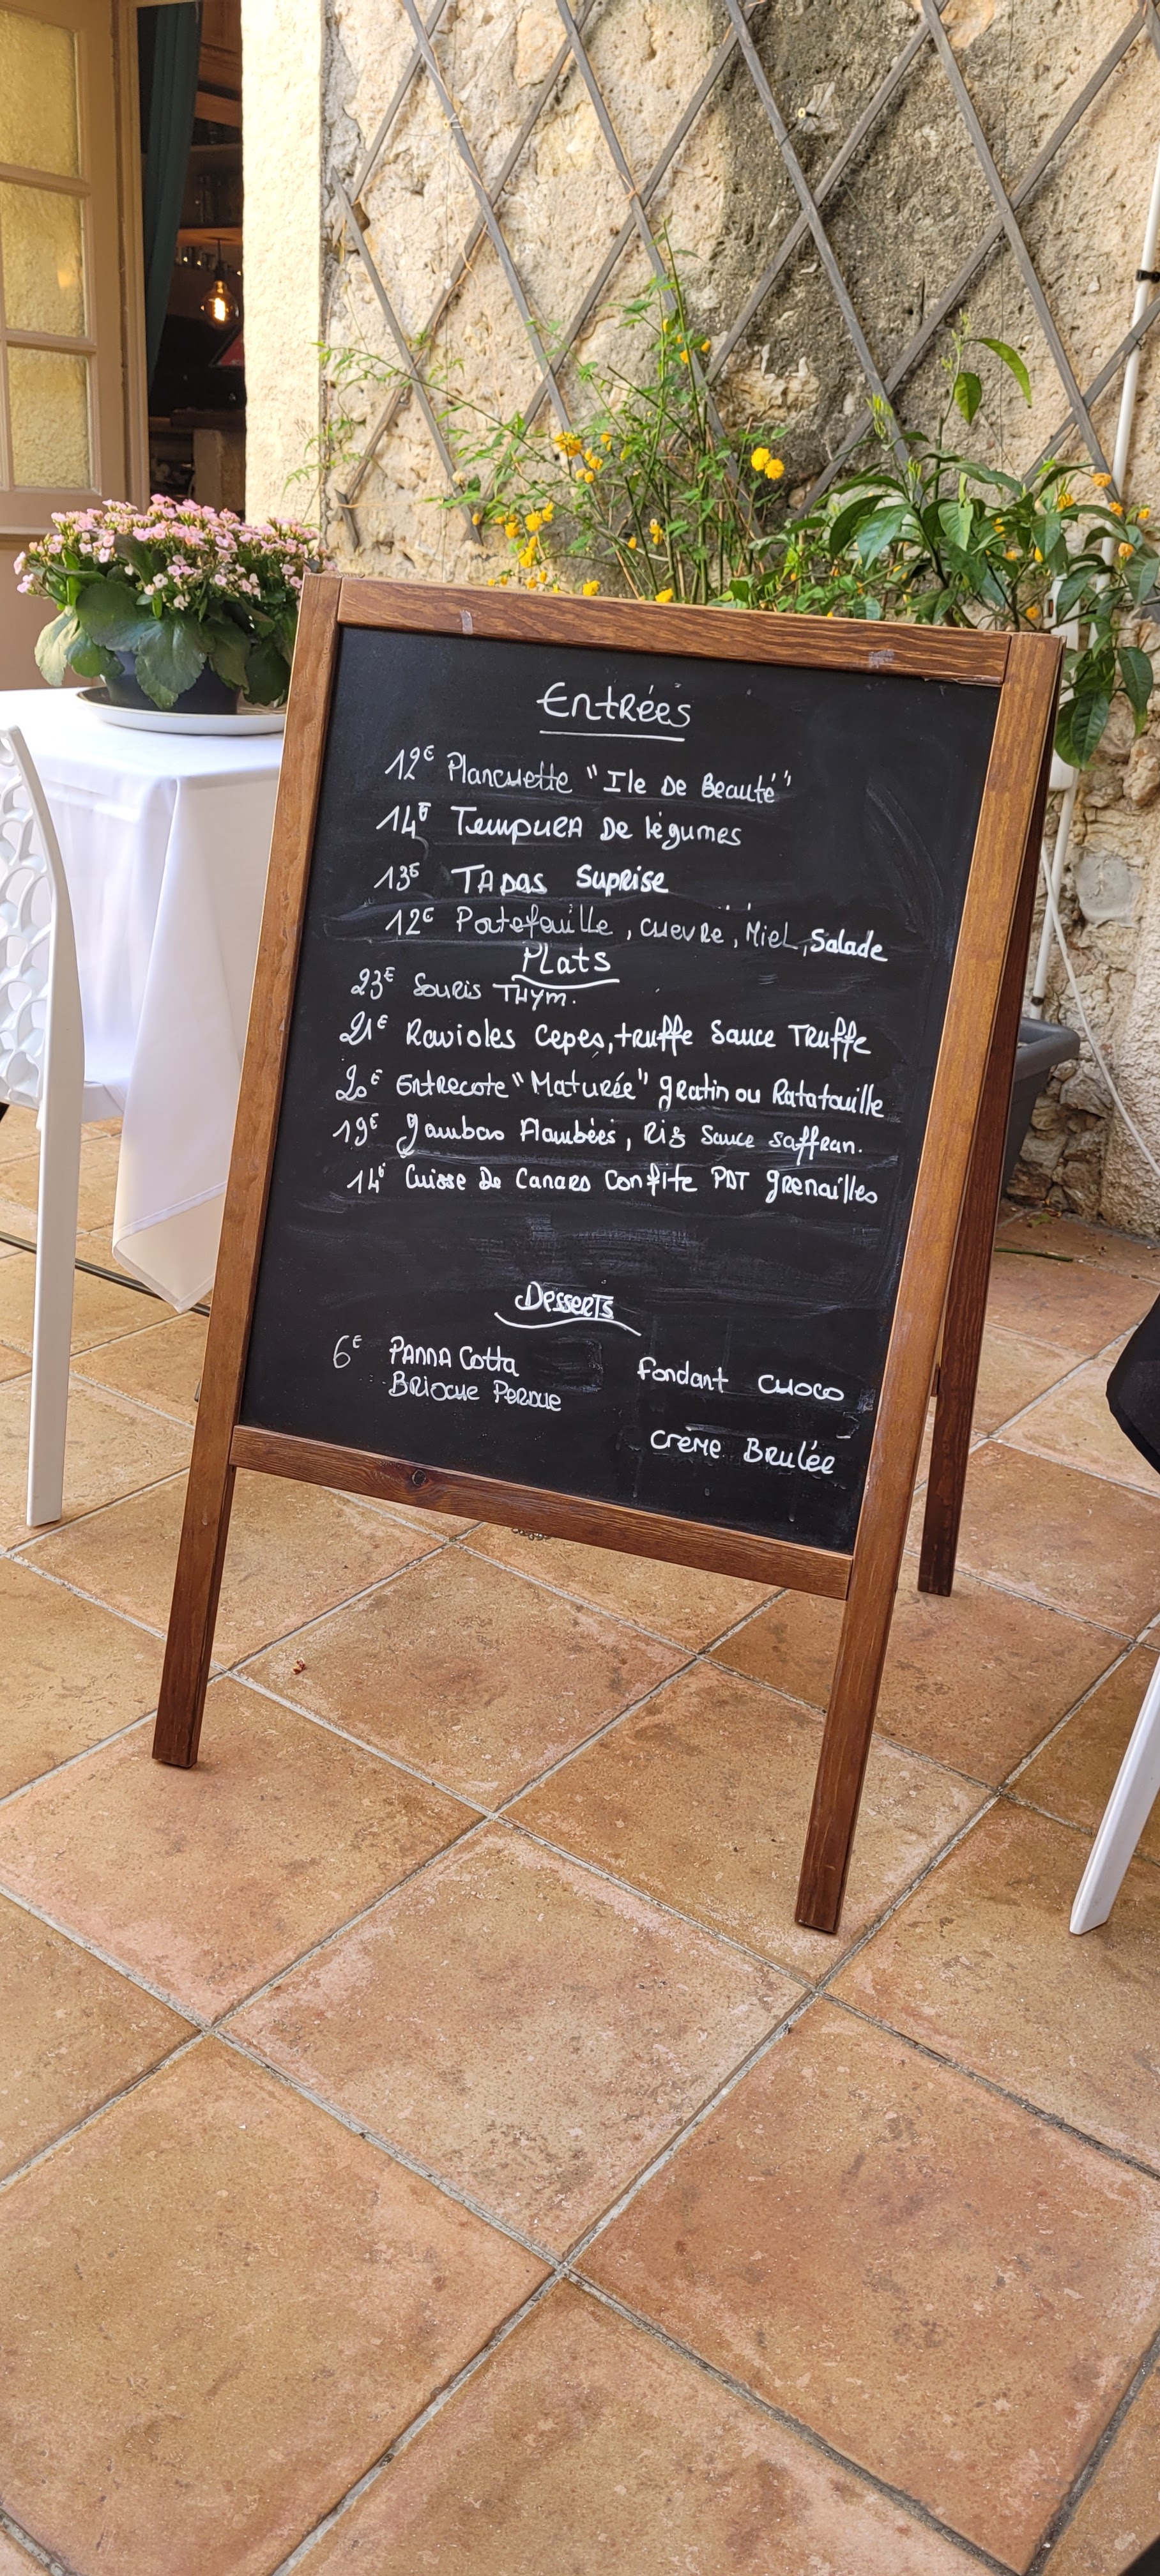 Entrées
12€ Planchette "Ile De Beauté"
14€ Tempura De légumes
13€ Tapas Suprise
12€ Portefeuille, chevre, Miel, Salade
Plats
23€ Souris Thym.
21€ Ravioles Cepes, truffe Sauce Truffe
20€ Entrecote "Maturée" gratin ou Ratatouille
19€ gambas Flambées, Riz Sauce saffran.
14€ Cuisse De Canard Confite PDT grenailles
Desserts
6€ Panna Cotta fondant choco
Brioche Perdue
crème Brulée